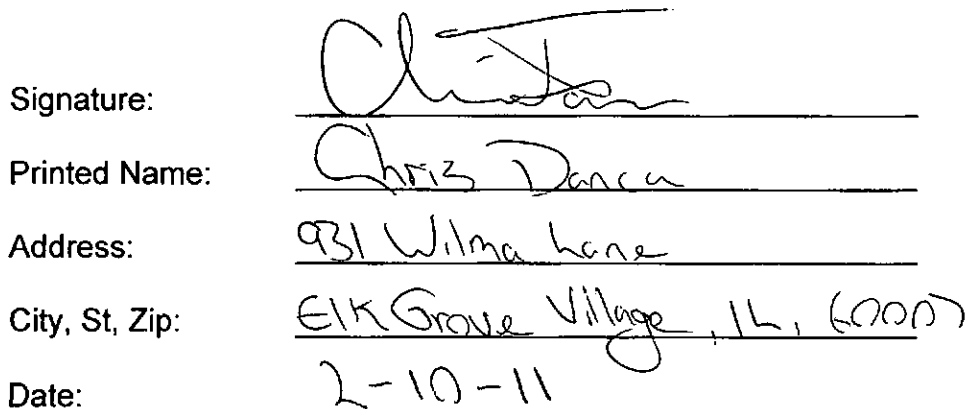 Signature:
Printed Name: Chris Danca
Address: 931 Wilma Lane
City, St, Zip: Elk Grove Village, IL, 60007
Date: 2-10-11